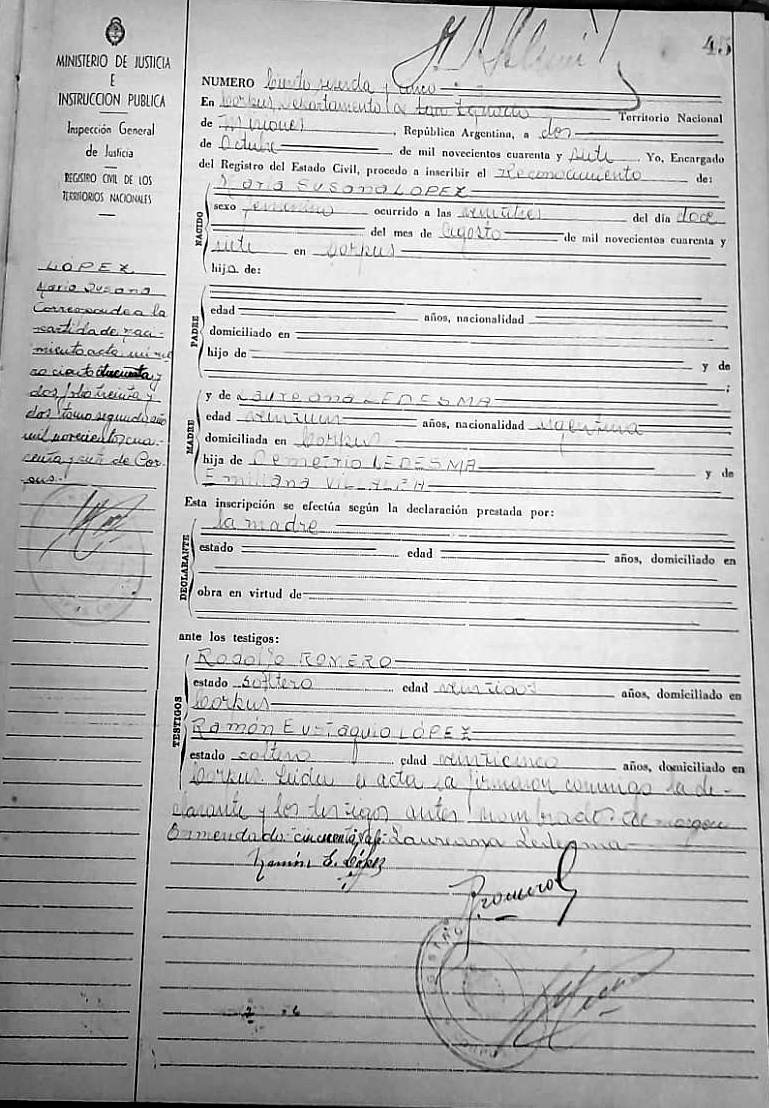 45
MINISTERIO DE JUSTICIA
E
INSTRUCCION PUBLICA
Inspección General
de Justicia
REGISTRO CIVIL DE LOS
TERRITORIOS NACIONALES
LÓPEZ
María Susana
Corresponde a la
partida de naci-
miento acta núme
ro ciento cincuenta y
dos folio treinta y
dos tomo segundo año
mil novecientos cua-
renta y siete de Cor-
pus.-
NUMERO Ciento sesenta y cinco
En Corpus, Departamento de San Ignacio Territorio Nacional
de Misiones, República Argentina, a dos
de Octubre de mil novecientos cuarenta y siete Yo, Encargado
del Registro del Estado Civil, procedo a inscribir el Reconocimiento de:
María SUSANA LOPEZ
NACIDO
sexo femenino ocurrido a las veintitres del día doce
del mes de Agosto de mil novecientos cuarenta y
siete en Corpus
hija de:
PADRE
edad años, nacionalidad
domiciliado en
hijo de y de
;
MADRE
y de Laureana LEDESMA
edad veintiun años, nacionalidad argentina
domiciliada en Corpus
hija de Demetrio LEDESMA y de
Emiliana
Esta inscripción se efectúa según la declaración prestada por:
DECLARANTE
la madre
estado edad años, domiciliado en
obra en virtud de
ante los testigos:
TESTIGOS
Rodolfo ROMERO
estado soltero edad años, domiciliado en
Corpus
Ramón Eustaquio LÓPEZ
estado soltero edad veinticinco años, domiciliado en
Corpus Leida el acta la firmaron conmigo la de-
clarante y los testigos antes nombrados. Al margen
Enmendado: cincuenta, Vale. Laureana Ledesma
Ramón E. López
Romero